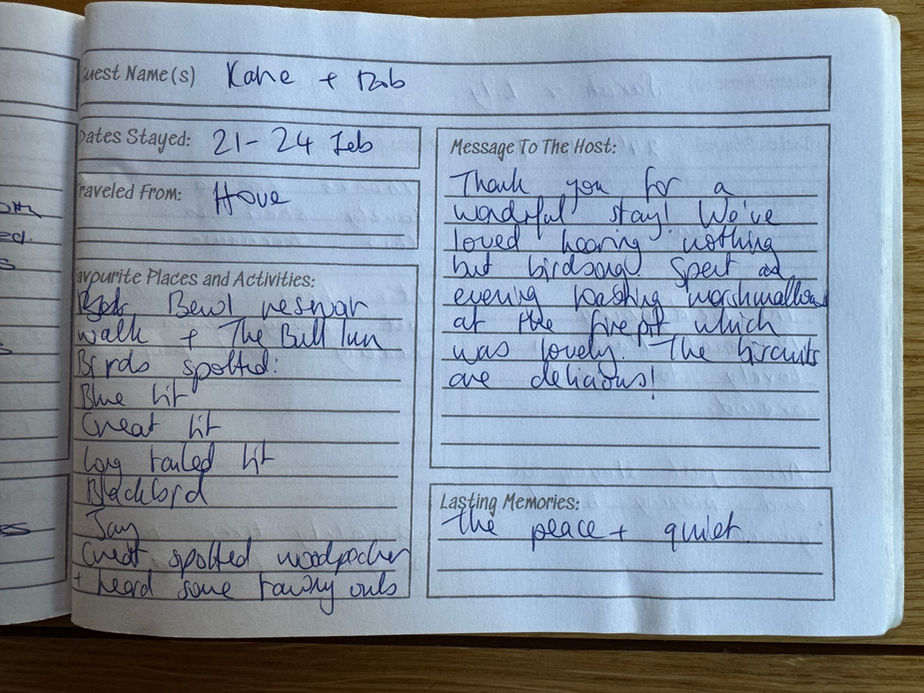 Guest Name(s) Kate + Rob
Dates Stayed: 21-24 Feb
Traveled From: Hove
Favourite Places and Activities:
Bewl reservoir
walk + The Bull Inn
Birds spotted:
Blue tit
Great tit
Long tailed tit
Blackbird
Jay
Great spotted woodpecker
+ heard some tawny owls
Message To The Host:
Thank you for a
wonderful stay! We've
loved hearing nothing
but birdsong. Spent an
evening roasting marshmallows
at the firepit which
was lovely. The biscuits
are delicious!
Lasting Memories:
The peace + quiet.